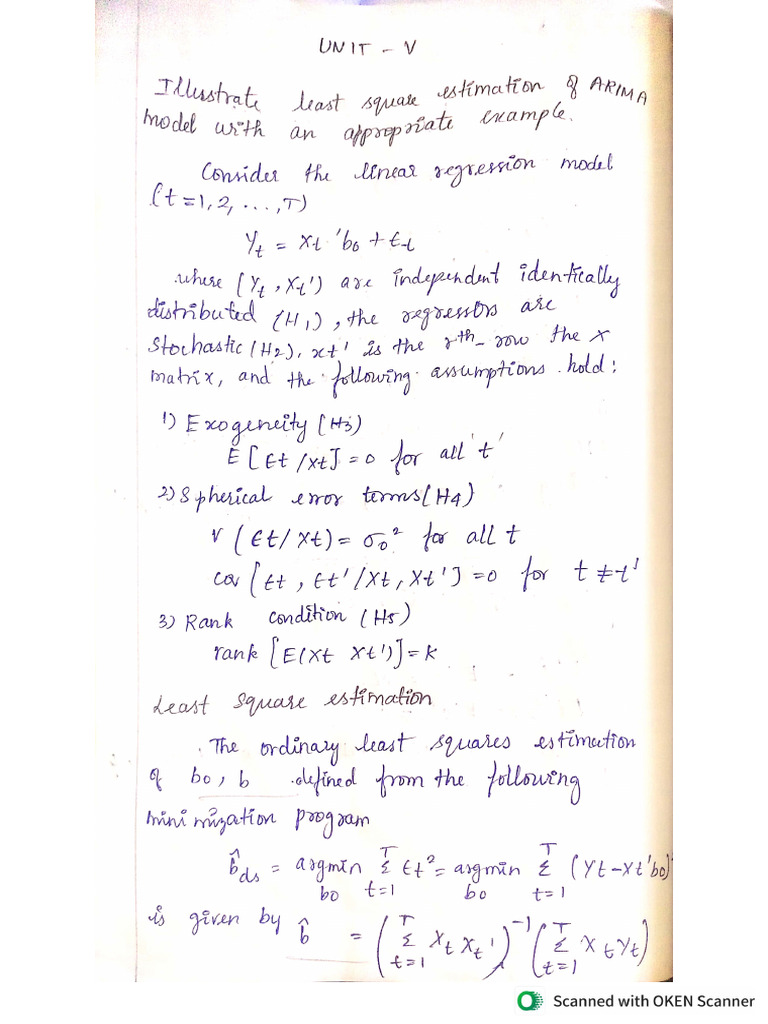 UNIT - V
Illustrate least square estimation of ARIMA
model with an appropriate example.
Consider the linear regression model
(t=1,2,...,T)
Yt = xt 'b0 + Et
where (Yt, Xt') are independent identically
distributed (H1), the regressors are
Stochastic (H2), xt' is the rth- row the x
matrix, and the following assumptions hold:
1) Exogeneity (H3)
E[Et/xt] = 0 for all 't'
2) Spherical error terms (H4)
V (Et/Xt) = σ0² for all t
cov [Et, Et'/Xt, Xt'] = 0 for t ≠ t'
3) Rank condition (H5)
rank [E(Xt Xt')] = K
Least square estimation
The ordinary least squares estimation
of b0, b defined from the following
minimization program
b̂ds = argmin_{b0} Σ_{t=1}^{T} Et² = argmin_{b0} Σ_{t=1}^{T} (Yt - Xt'b0)²
is given by b̂ = (Σ_{t=1}^{T} Xt Xt')^{-1} (Σ_{t=1}^{T} Xt Yt)
Scanned with OKEN Scanner